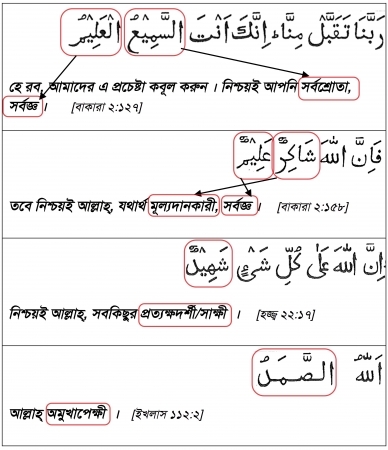 رَبَّنَا تَقَبَّلْ مِنَّا ۖ اِنَّكَ اَنْتَ السَّمِيْعُ الْعَلِيْمُ
হে রব, আমাদের এ প্রচেষ্টা কবূল করুন । নিশ্চয়ই আপনি সর্বশ্রোতা,
সর্বজ্ঞ । [বাকারা ২:১২৭]
فَاِنَّ اللّٰهَ شَاكِرٌ عَلِيْمٌ
তবে নিশ্চয়ই আল্লাহ্, যথার্থ মূল্যদানকারী, সর্বজ্ঞ । [বাকারা ২:১৫৮]
اِنَّ اللّٰهَ عَلٰى كُلِّ شَيْءٍ شَهِيْدٌ
নিশ্চয়ই আল্লাহ্, সবকিছুর প্রত্যক্ষদর্শী/সাক্ষী । [হজ্জ্ব ২২:১৭]
اَللّٰهُ الصَّمَدُ
আল্লাহ্ অমুখাপেক্ষী । [ইখলাস ১১২:২]